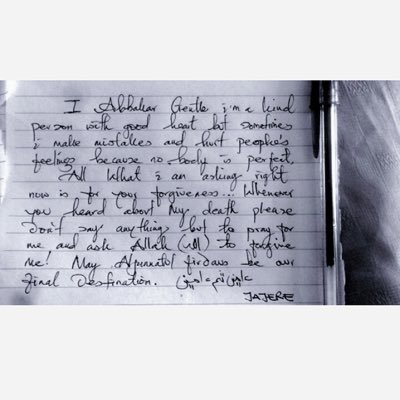 I Abbakar Gentle i'm a kind
person with good heart but sometimes
i make mistakes and hurt people's
feelings because no body is perfect.
All What i am asking right
now is for your forgiveness... Whenever
you heard about My death please
don't say anything but to pray for
me and ask Allah (swt) to forgive
me! May Aljannatul firdaus be our
final Destination. آمين ثم آمين
JAJERE